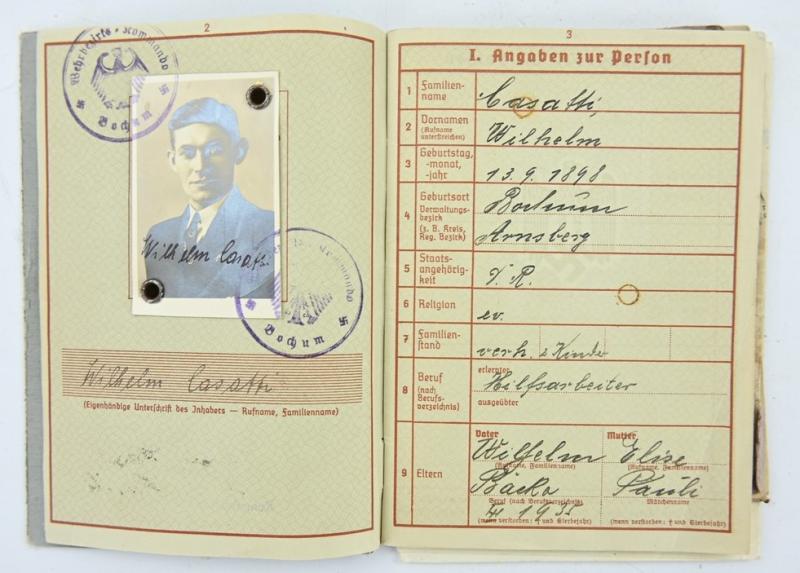 2
Wehrbezirks-Kommando
Bochum
Wilhelm Casatti
Bochum
Wilhelm Casatti
(Eigenhändige Unterschrift des Inhabers — Rufname, Familienname)
3
I. Angaben zur Person
1 Familien-
name
Casatti,
2 Vornamen
(Rufname
unterstreichen)
Wilhelm
3 Geburtstag,
-monat,
-jahr
13. 9. 1898
4 Geburtsort
Verwaltungs-
bezirk
(z. B. Kreis,
Reg. Bezirk)
Bochum
Arnsberg
5 Staats-
angehörig-
keit
D. R.
6 Religion
ev.
7 Familien-
stand
verh. 2 Kinder
8 Beruf
(nach
Berufs-
verzeichnis)
erlernter
Hilfsarbeiter
ausgeübter
9 Eltern
Vater Mutter
Wilhelm Elise
(Rufname, Familienname) (Rufname, Familienname)
Pauli
Beruf (nach Berufsverzeichnis) Mädchenname
1935
(wenn verstorben: † und Sterbejahr) (wenn verstorben: † und Sterbejahr)